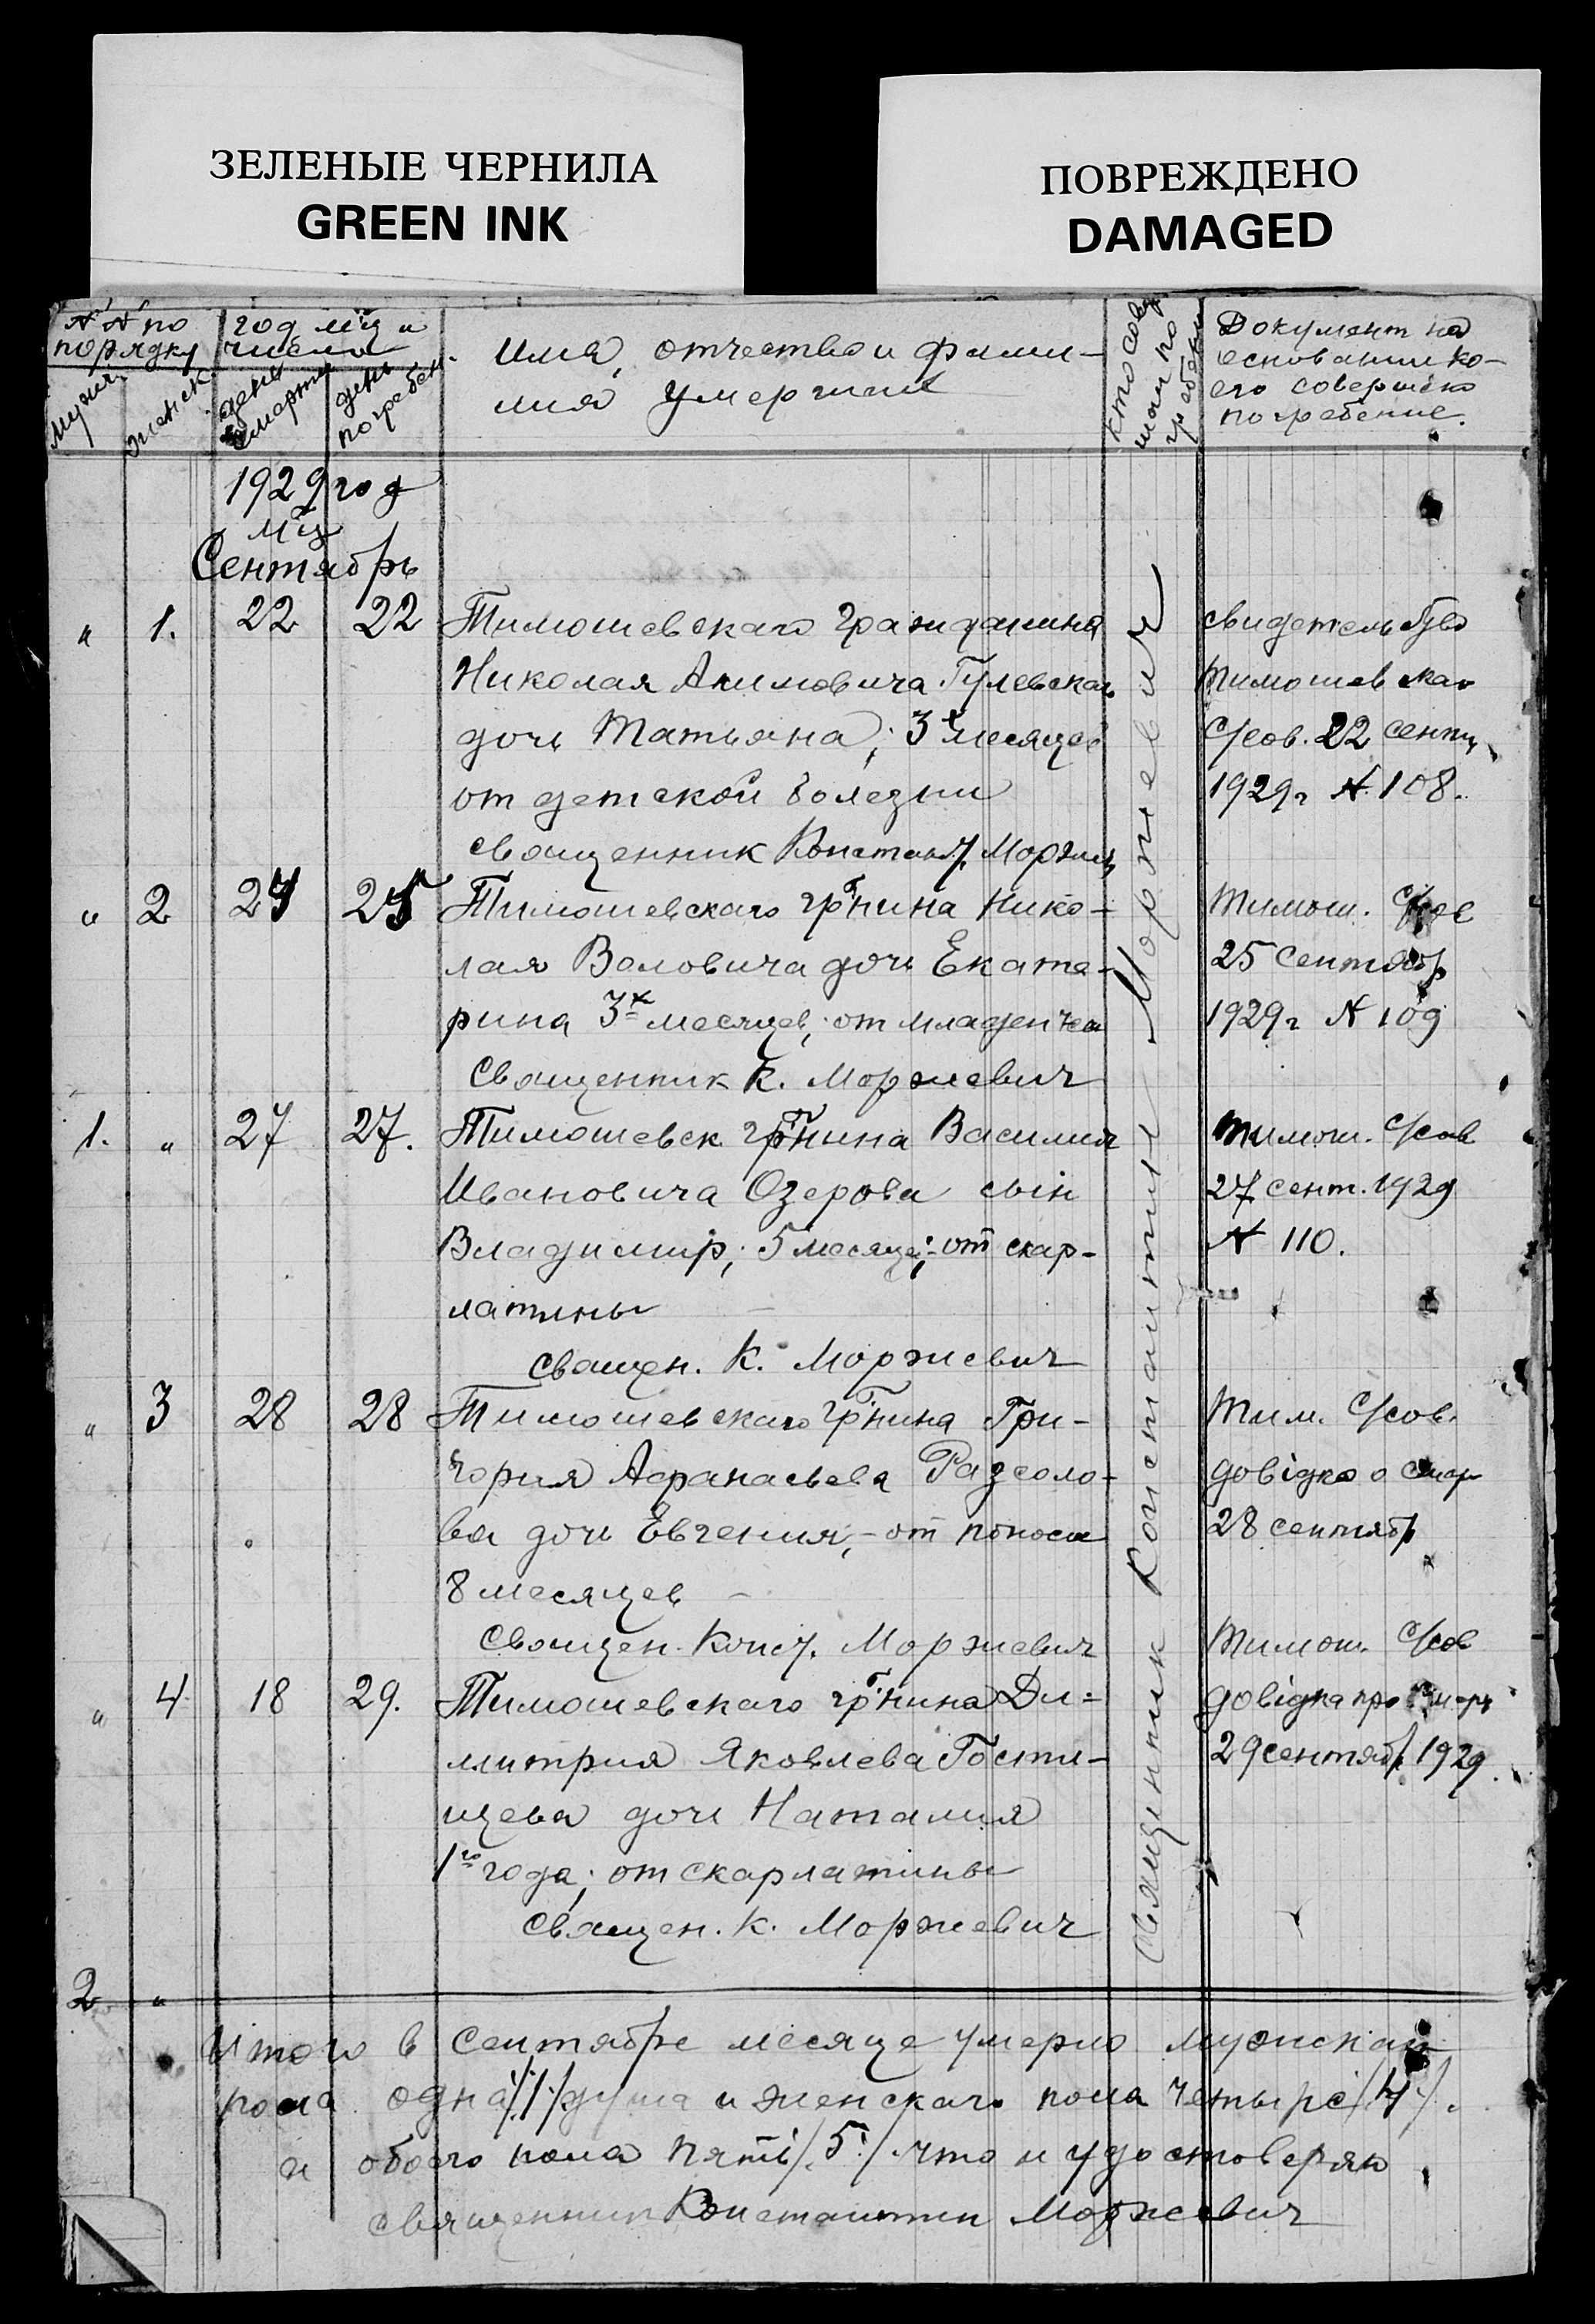 ЗЕЛЕНЫЕ ЧЕРНИЛА
GREEN INK
ПОВРЕЖДЕНО
DAMAGED
№№ по порядку
мужск.
женск.
год мц и число
день смерти
день погребен.
Имя, отчество и фами-
лия умерших
кто совер
шал по
гребение
Документ на
основании ко-
его совершено
погребение.
1929 год
мц
Сентябрь
" 1. 22 22 Тимошевскаго гражданина
Николая Акимовича Гулевскаго
дочь Татьяна; 3х месяцев
от детской болезни
священник Констант. Моржев
свидетельство
Тимошевскаго
С/сов. 22 сент
1929 г № 108.
" 2 25 Тимошевскаго гр-нина Нико-
лая Воловича дочь Екате-
рина 3х месяцев, от младенческ
Священник К. Моржевич
Тимош. С/сов
25 Сентябр
1929 г № 109
1. " 27 27. Тимошевск гр-нина Василия
Ивановича Озерова сын
Владимир; 5 месяце; от скар-
латины
Священ. К. Моржевич
Тимош. С/сов
27 сент. 1929
№ 110.
" 3 28 28 Тимошевскаго гр-нина Гри-
гория Афанасьева Разсоло-
ва дочь Евгения, - от поноса
8 месяцев
Священ. Конст. Моржевич
Тим. С/сов.
довiдка о смер
28 сентябр
" 4 18 29. Тимошевскаго гр-нина Ди=
митрия Яковлева Гости-
щева дочь Наталия
1го года; от скарлатины
Священ. К. Моржевич
Тимош. С/сов
довiдка про смерть
29 сентябр 1929.
Священник Константин Моржевич
2 "
Итого в сентябре месяце умерло мужскаго
пола одна /1/ душа и женскаго пола четыре /4/.
а обоего пола пять /5/. что и удостоверяю
священник Константин Моржевич